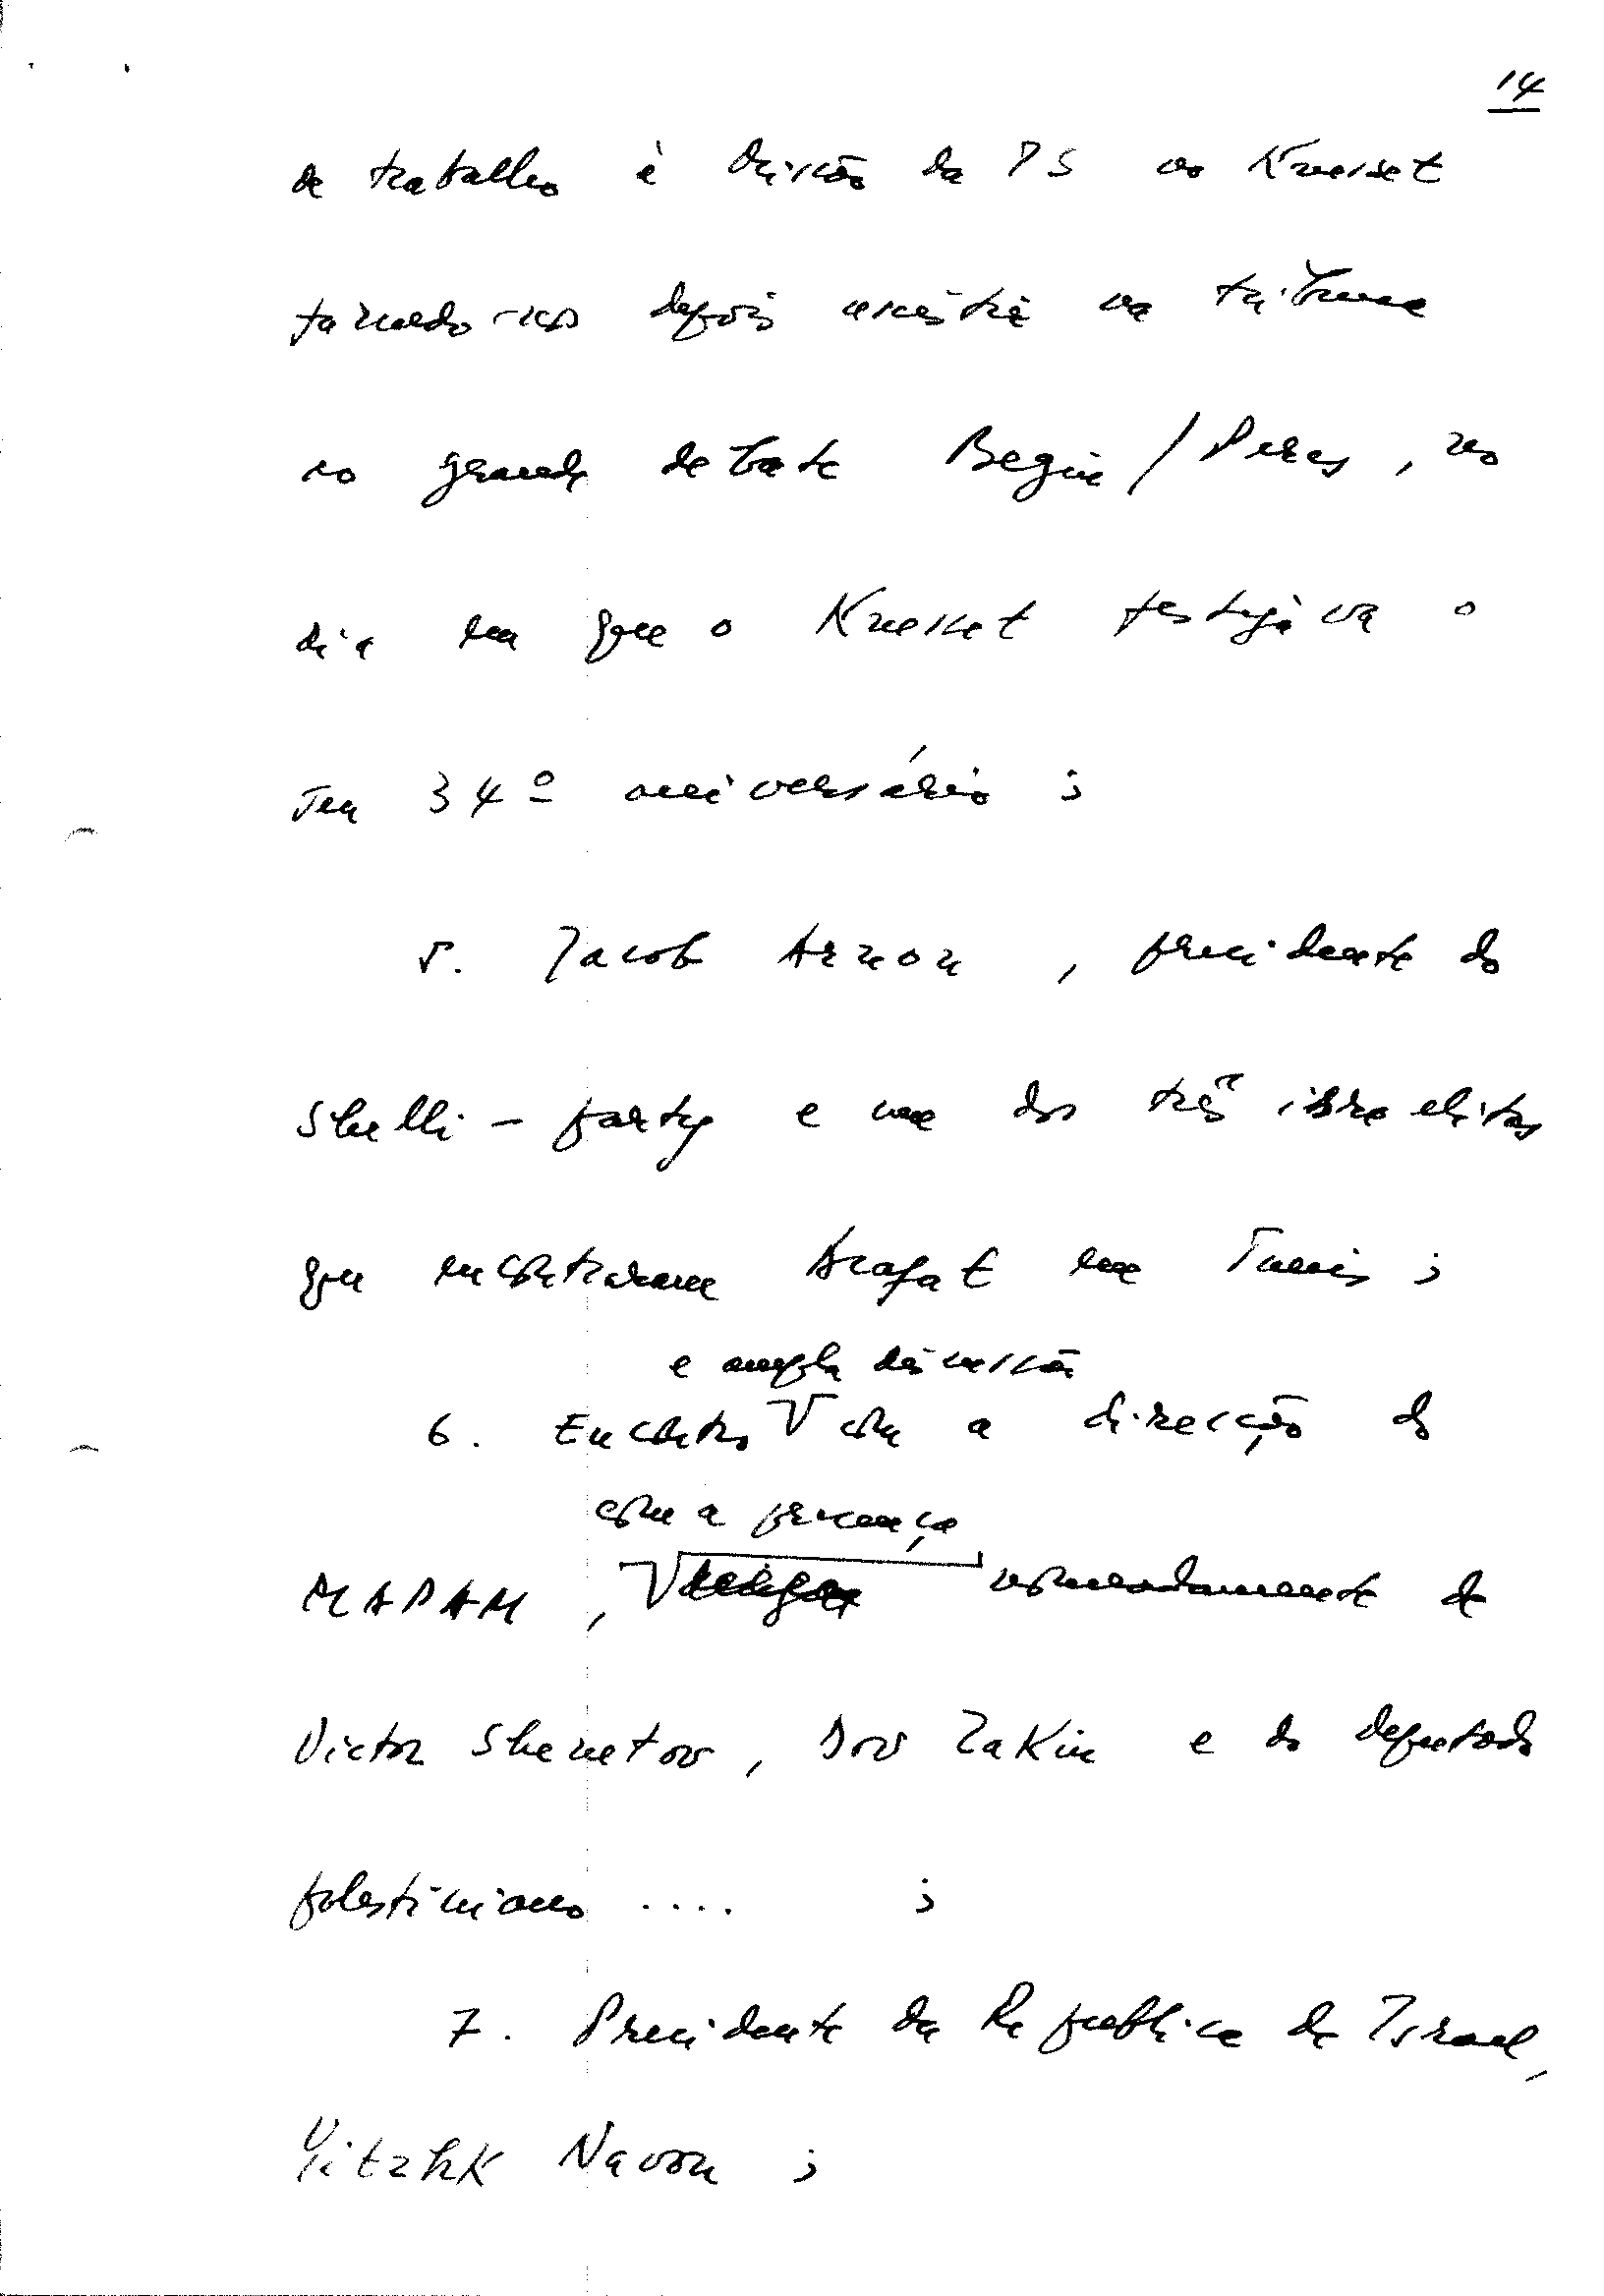 14
de trabalho à missão da IS ao Knesset
fazendo-nos depois assistir na tribuna
ao grande debate Begin / Peres, no
dia em que o Knesset festejava o
seu 34º aniversário ;
5. Jacob Arnon, presidente do
Shelli - party e um dos três israelitas
que encontraram Arafat em Tunis ;
e ampla discussão
6. Encontro V com a direcção do
com a presença
MAPAM, V nomeadamente de
Victor Shemtov, Dov Zakin e do deputado
palestiniano .... ;
7. Presidente da República de Israel,
Yitzhk Navon ;